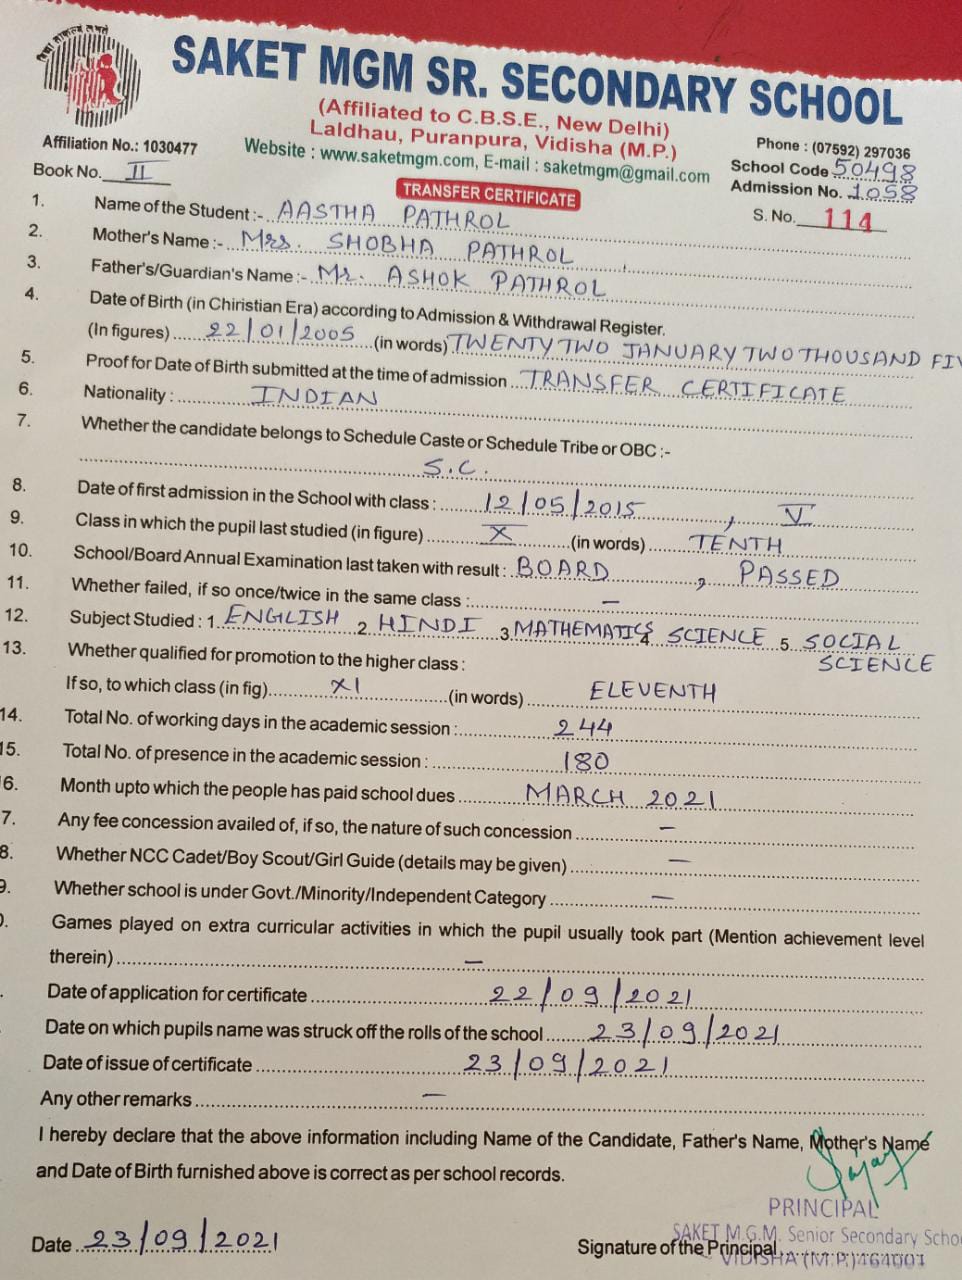 SAKET MGM SR. SECONDARY SCHOOL
(Affiliated to C.B.S.E., New Delhi)
Laldhau, Puranpura, Vidisha (M.P.)
Website : www.saketmgm.com, E-mail : saketmgm@gmail.com
Affiliation No.: 1030477
Phone : (07592) 297036
School Code 50498
Book No. II
Admission No. 1058
TRANSFER CERTIFICATE
S. No. 114
1. Name of the Student :- AASTHA PATHROL
2. Mother's Name :- Mrs. SHOBHA PATHROL
3. Father's/Guardian's Name :- Mr. ASHOK PATHROL
4. Date of Birth (in Chiristian Era) according to Admission & Withdrawal Register.
(In figures) 22/01/2005 (in words) TWENTY TWO JANUARY TWO THOUSAND FIV
5. Proof for Date of Birth submitted at the time of admission TRANSFER CERTIFICATE
6. Nationality : INDIAN
7. Whether the candidate belongs to Schedule Caste or Schedule Tribe or OBC :-
S.C.
8. Date of first admission in the School with class : 12/05/2015, V
9. Class in which the pupil last studied (in figure) X (in words) TENTH
10. School/Board Annual Examination last taken with result : BOARD, PASSED
11. Whether failed, if so once/twice in the same class : —
12. Subject Studied : 1. ENGLISH 2. HINDI 3. MATHEMATICS 4. SCIENCE 5. SOCIAL
SCIENCE
13. Whether qualified for promotion to the higher class :
If so, to which class (in fig) XI (in words) ELEVENTH
14. Total No. of working days in the academic session : 244
15. Total No. of presence in the academic session : 180
6. Month upto which the people has paid school dues MARCH 2021
7. Any fee concession availed of, if so, the nature of such concession —
8. Whether NCC Cadet/Boy Scout/Girl Guide (details may be given) —
9. Whether school is under Govt./Minority/Independent Category —
Games played on extra curricular activities in which the pupil usually took part (Mention achievement level
therein) —
Date of application for certificate 22/09/2021
Date on which pupils name was struck off the rolls of the school 23/09/2021
Date of issue of certificate 23/09/2021
Any other remarks —
I hereby declare that the above information including Name of the Candidate, Father's Name, Mother's Name
and Date of Birth furnished above is correct as per school records.
PRINCIPAL
SAKET M.G.M. Senior Secondary Schoo
Date 23/09/2021
Signature of the Principal
VIDISHA (M.P.) 464001